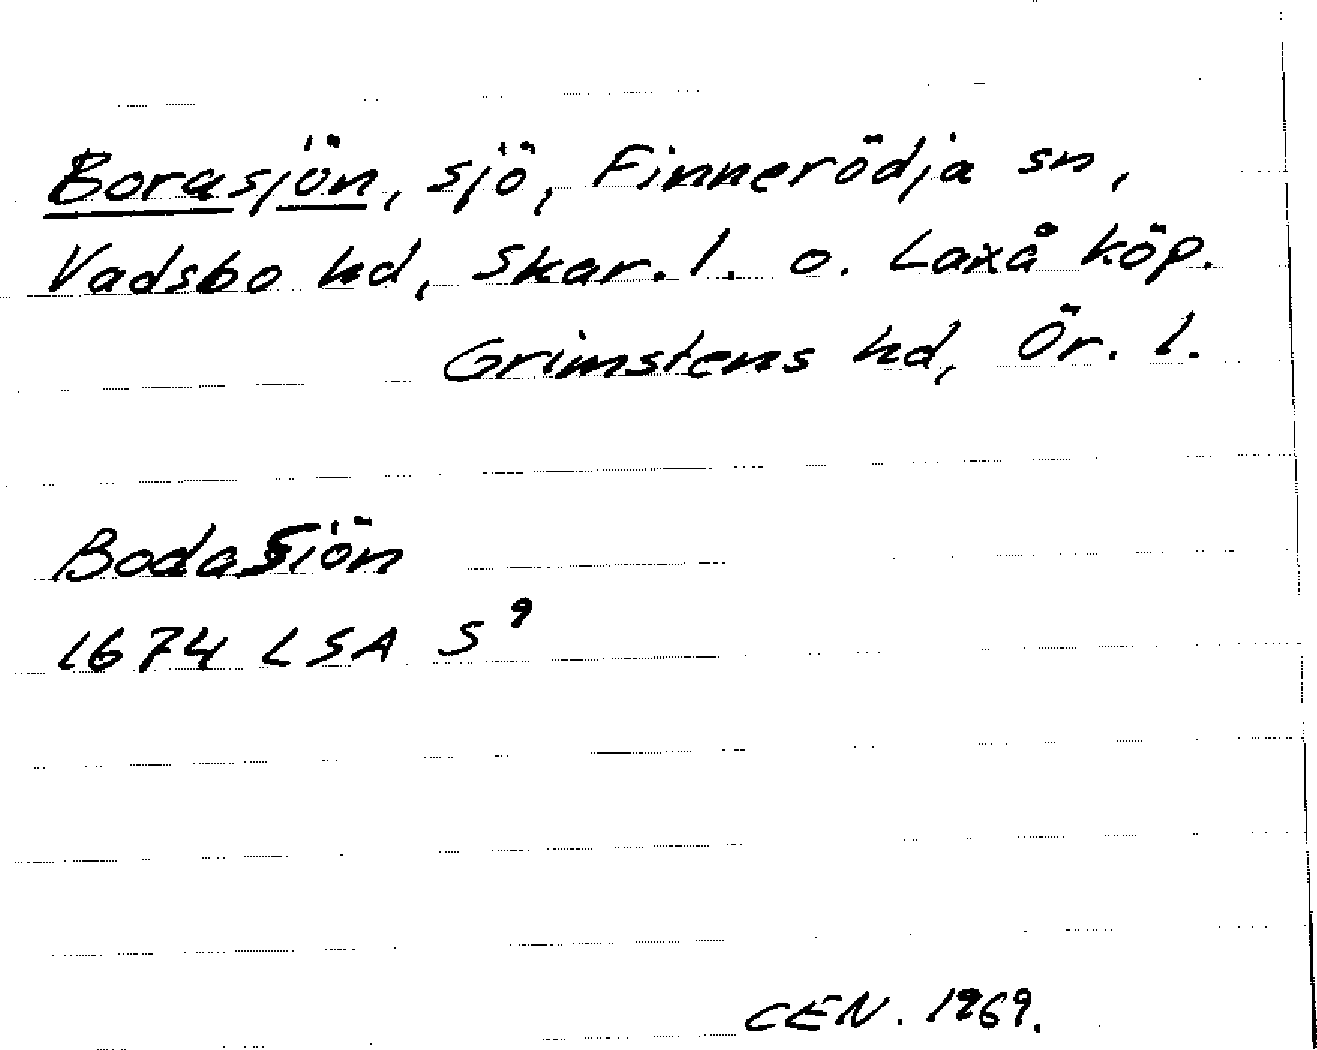 Borasjön, sjö, Finnerödja sn,
Vadsbo hd, Skar. l. o. Laxå köp.
Grimstens hd, Ör. l.
BodaSiön
1674 LSA S⁹
CEN. 1969.